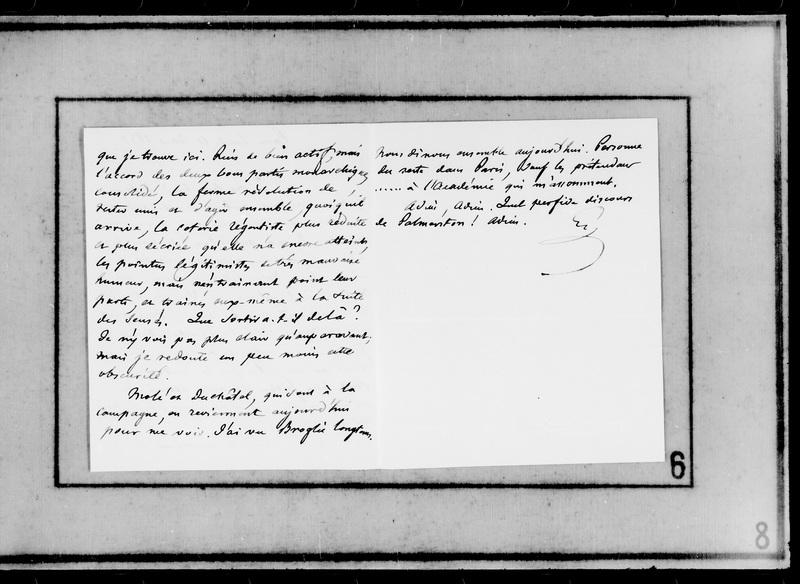 que je trouve ici. Rien de bien actif ; mais
l'accord des deux bons partis monarchiques
consolidé, la ferme résolution de
rester unis et d'agir ensemble quoiqu'il
arrive, la coterie régentiste plus réduite
et plus décriée qu'elle n'a encore été
les pointus légitimistes de très mauvaise
humeur, mais n'entrainant point leur
parti, et trainés eux-même à la suite
des sensés. Que sortira-t-il delà ?
Je n'y vois pas plus clair qu'auparavant ;
mais je redoute un peu moins cette
obscurité.
Molé et Duchâtel, qui sont à la
campagne, en reviennent aujourd'hui
pour me voir. J'ai vu Broglie longtems.
Nous dinons ensemble aujourd'hui. Personne
du reste dans Paris, sauf les prétendans
...... à l'Académie qui m'assomment.
Adieu, Adieu. Quel perfide discours
de Palmerston ! Adieu.
6
8